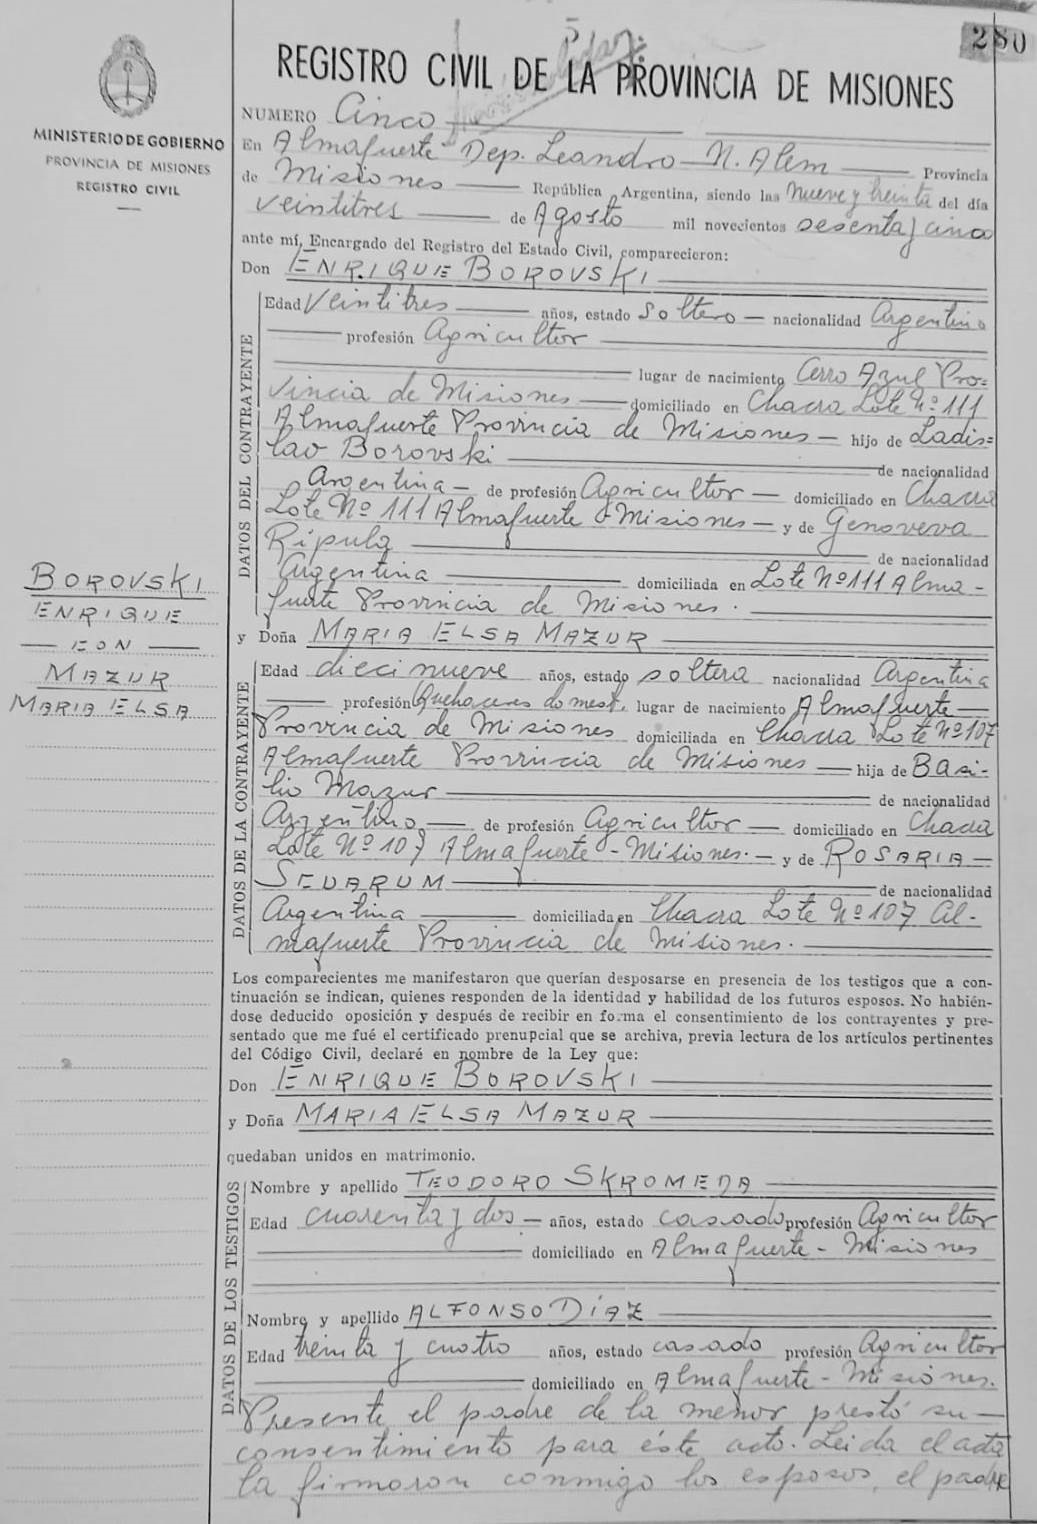 280
REGISTRO CIVIL DE LA PROVINCIA DE MISIONES
MINISTERIO DE GOBIERNO
PROVINCIA DE MISIONES
REGISTRO CIVIL
NUMERO Cinco
En Almafuerte Dep. Leandro N. Alem Provincia
de Misiones República Argentina, siendo las nueve y treinta del día
veintitres de Agosto mil novecientos sesenta y cinco
ante mí, Encargado del Registro del Estado Civil, comparecieron:
Don ENRIQUE BOROVSKI
DATOS DEL CONTRAYENTE
Edad Veintitres años, estado Soltero nacionalidad Argentino
profesión Agricultor
lugar de nacimiento Cerro Azul Pro=
vincia de Misiones domiciliado en Chacra Lote Nº 111
Almafuerte Provincia de Misiones hijo de Ladis=
lao Borovski de nacionalidad
Argentina de profesión Agricultor domiciliado en Chacra
Lote Nº 111 Almafuerte Misiones y de Genoveva
Ripula de nacionalidad
Argentina domiciliada en Lote Nº 111 Alma-
fuerte Provincia de Misiones.
BOROVSKI
ENRIQUE
CON
MAZUR
MARIA ELSA
y Doña MARIA ELSA MAZUR
DATOS DE LA CONTRAYENTE
Edad diecinueve años, estado soltera nacionalidad Argentina
profesión Quehaceres domest. lugar de nacimiento Almafuerte
Provincia de Misiones domiciliada en Chacra Lote Nº 107
Almafuerte Provincia de Misiones hija de Basi-
lio Mazur de nacionalidad
Argentino de profesión Agricultor domiciliado en Chacra
Lote Nº 107 Almafuerte - Misiones. y de ROSARIA
de nacionalidad
Argentina domiciliada en Chacra Lote Nº 107 Al-
mafuerte Provincia de Misiones.
Los comparecientes me manifestaron que querían desposarse en presencia de los testigos que a con-
tinuación se indican, quienes responden de la identidad y habilidad de los futuros esposos. No habién-
dose deducido oposición y después de recibir en forma el consentimiento de los contrayentes y pre-
sentado que me fué el certificado prenupcial que se archiva, previa lectura de los artículos pertinentes
del Código Civil, declaré en nombre de la Ley que:
Don ENRIQUE BOROVSKI
y Doña MARIA ELSA MAZUR
quedaban unidos en matrimonio.
DATOS DE LOS TESTIGOS
Nombre y apellido TEODORO SKROMEDA
Edad cuarenta y dos años, estado casado profesión Agricultor
domiciliado en Almafuerte - Misiones
Nombre y apellido ALFONSO DÍAZ
Edad treinta y cuatro años, estado casado profesión Agricultor
domiciliado en Almafuerte - Misiones.
Presente el padre de la menor prestó su
consentimiento para éste acto. Leida el acta
la firmaron conmigo los esposos, el padre